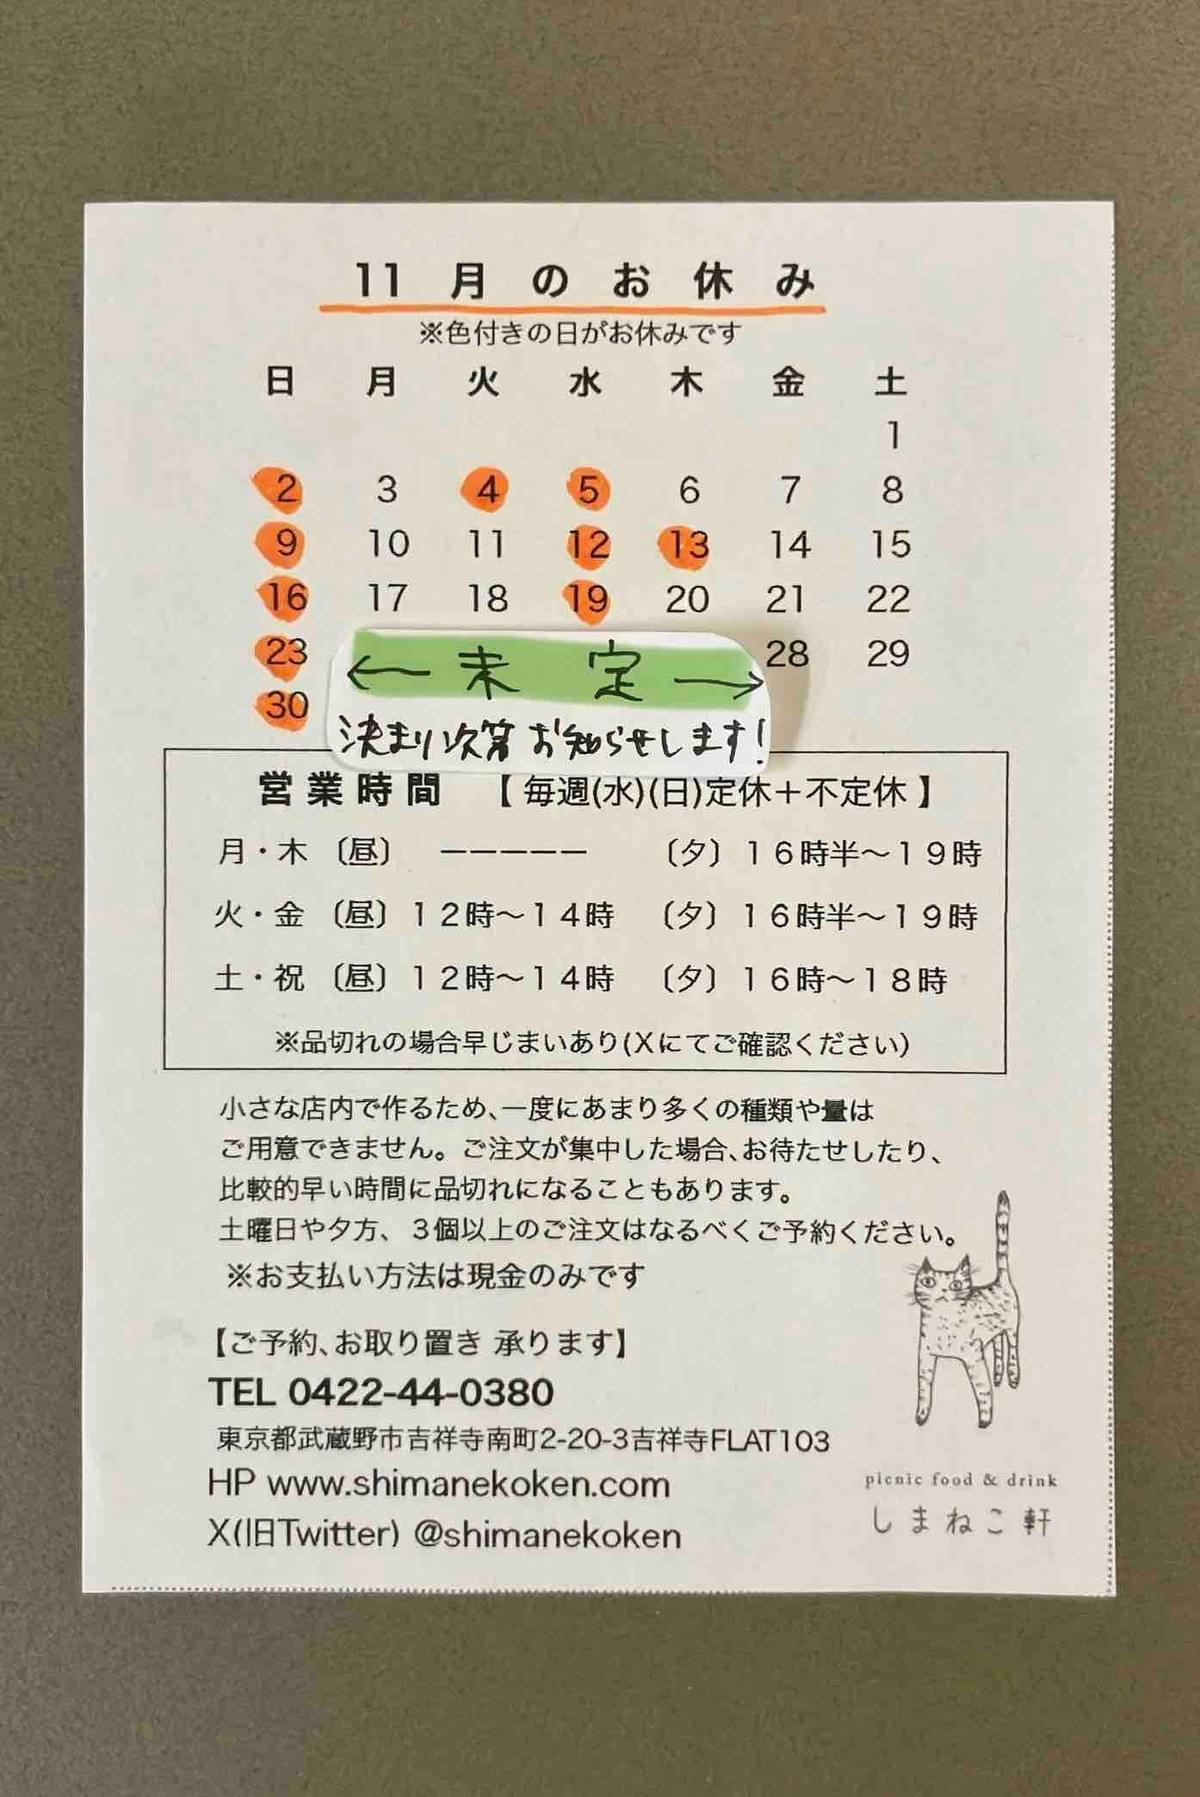 11月のお休み
※色付きの日がお休みです
日 月 火 水 木 金 土
1
2 3 4 5 6 7 8
9 10 11 12 13 14 15
16 17 18 19 20 21 22
23 ←未定→ 28 29
30 決まり次第お知らせします!
営業時間 【毎週(水)(日)定休+不定休】
月・木 〔昼〕 ーーーーー 〔夕〕16時半〜19時
火・金 〔昼〕12時〜14時 〔夕〕16時半〜19時
土・祝 〔昼〕12時〜14時 〔夕〕16時〜18時
※品切れの場合早じまいあり(Xにてご確認ください)
小さな店内で作るため、一度にあまり多くの種類や量は
ご用意できません。ご注文が集中した場合、お待たせしたり、
比較的早い時間に品切れになることもあります。
土曜日や夕方、3個以上のご注文はなるべくご予約ください。
※お支払い方法は現金のみです
【ご予約、お取り置き 承ります】
TEL 0422-44-0380
東京都武蔵野市吉祥寺南町2-20-3吉祥寺FLAT103
HP www.shimanekoken.com
X(旧Twitter) @shimanekoken
picnic food & drink
しまねこ軒